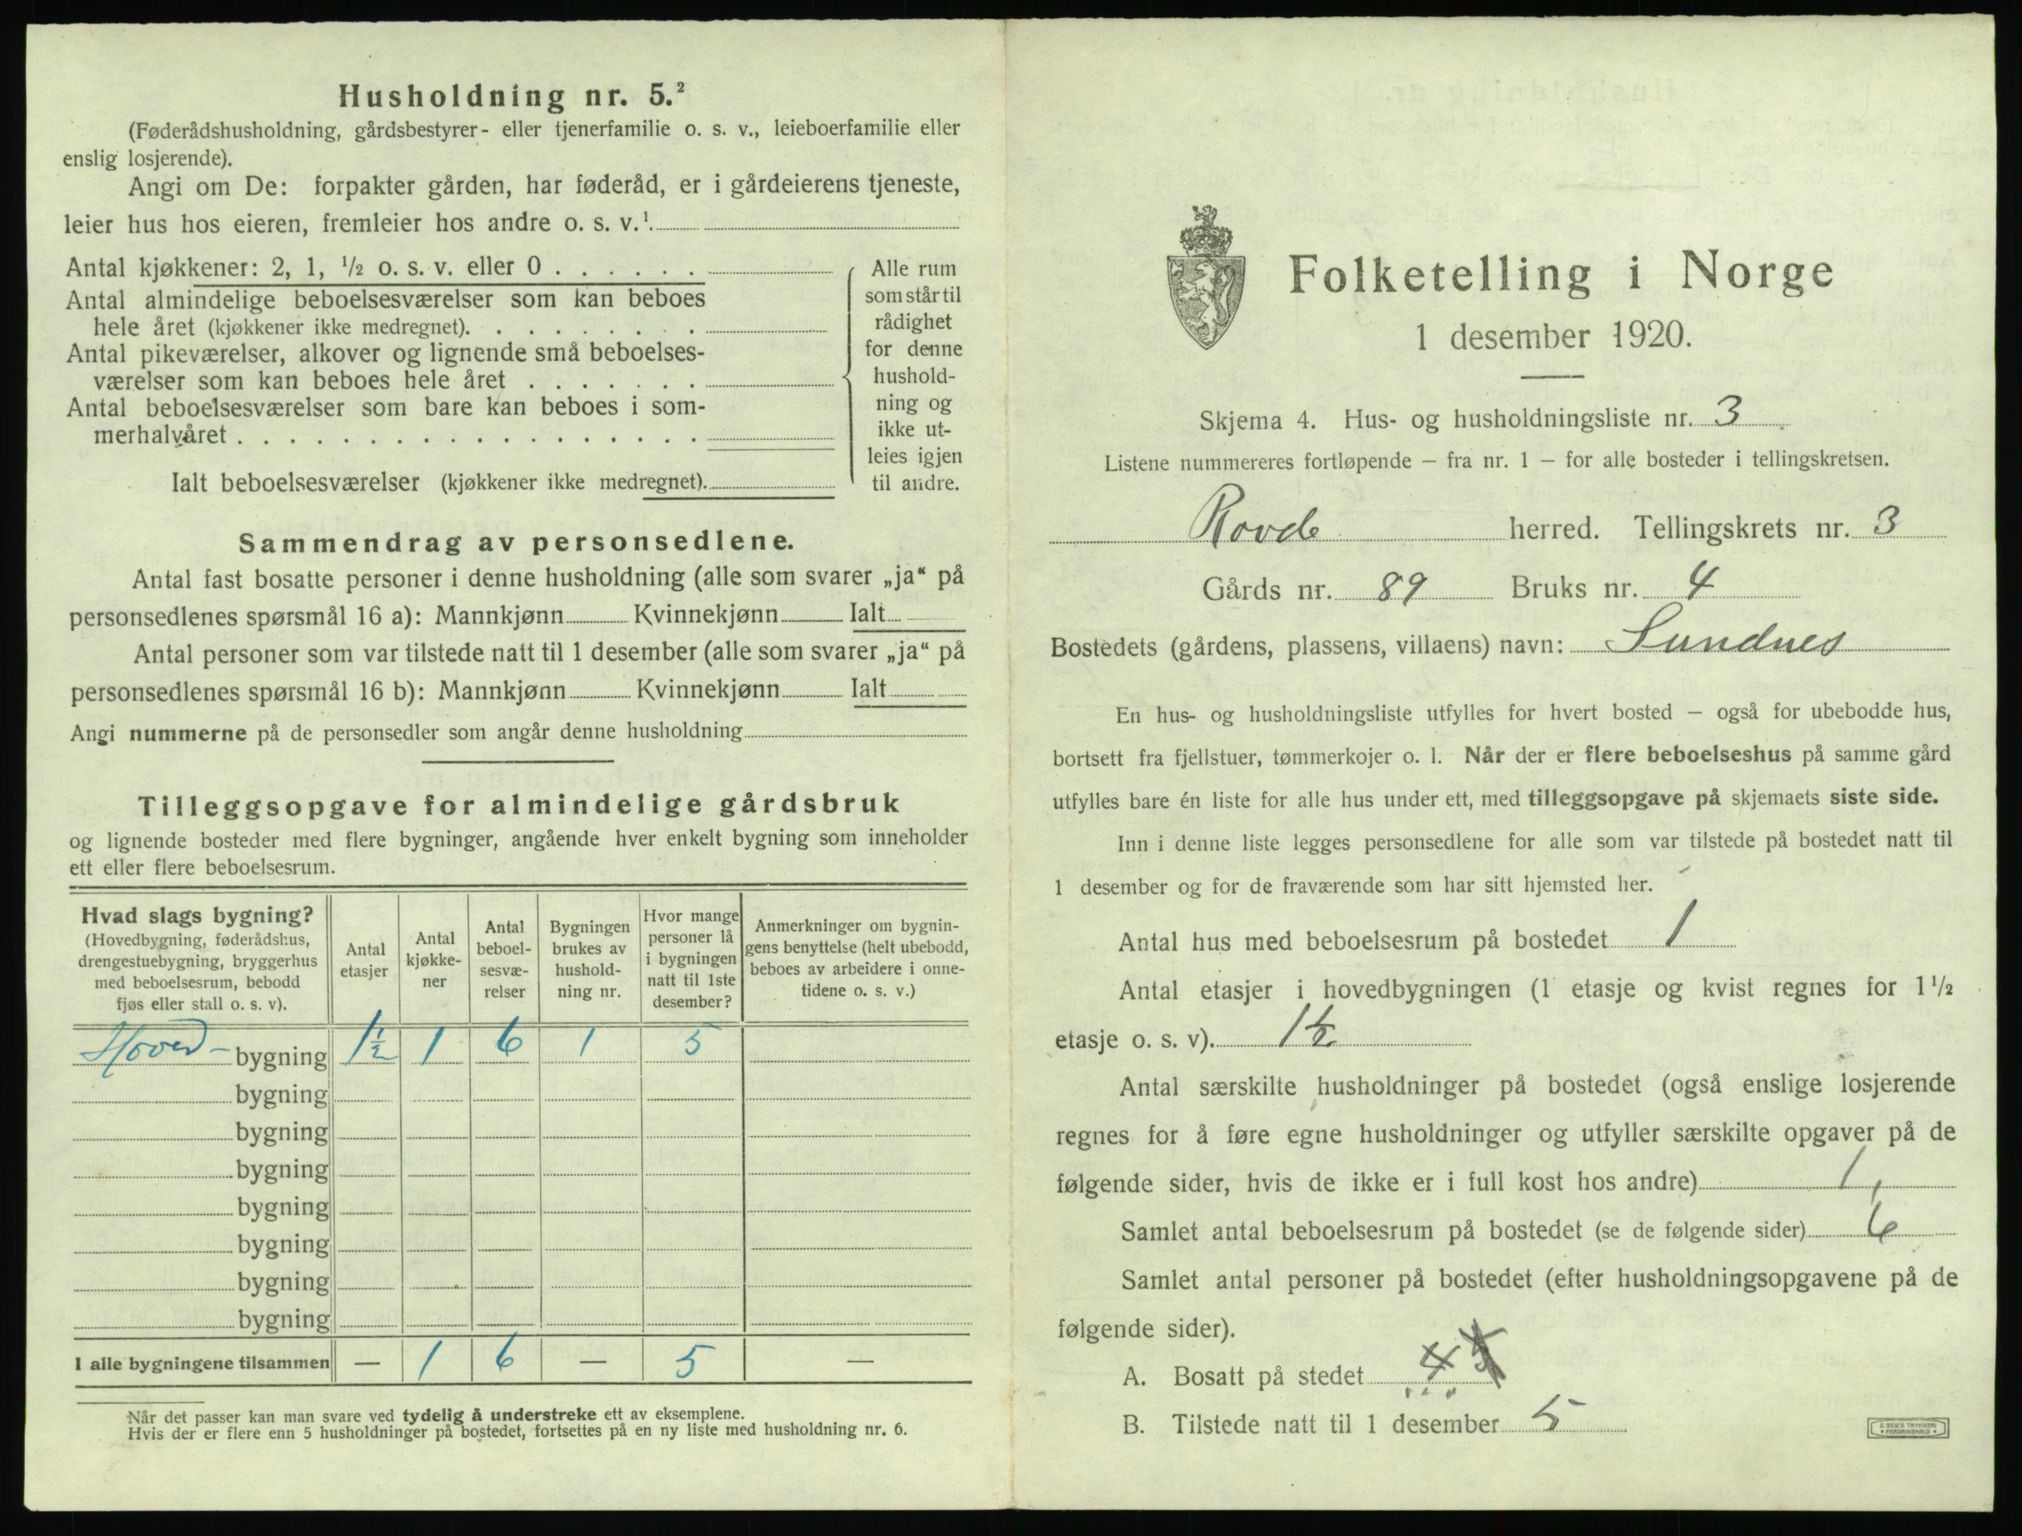 Husholdning nr. 5.²
(Føderådshusholdning, gårdsbestyrer- eller tjenerfamilie o. s. v., leieboerfamilie eller
enslig losjerende).
Angi om De: forpakter gården, har føderåd, er i gårdeierens tjeneste,
leier hus hos eieren, fremleier hos andre o. s. v.¹
Antal kjøkkener: 2, 1, ½ o. s. v. eller 0
Antal almindelige beboelsesværelser som kan beboes
hele året (kjøkkener ikke medregnet)
Antal pikeværelser, alkover og lignende små beboelses-
værelser som kan beboes hele året
Antal beboelsesværelser som bare kan beboes i som-
merhalvåret
Ialt beboelsesværelser (kjøkkener ikke medregnet)
Alle rum
som står til
rådighet
for denne
hushold-
ning og
ikke ut-
leies igjen
til andre.
Sammendrag av personsedlene.
Antal fast bosatte personer i denne husholdning (alle som svarer „ja“ på
personsedlenes spørsmål 16 a): Mannkjønn Kvinnekjønn Ialt
Antal personer som var tilstede natt til 1 desember (alle som svarer „ja“ på
personsedlenes spørsmål 16 b): Mannkjønn Kvinnekjønn Ialt
Angi nummerne på de personsedler som angår denne husholdning
Tilleggsopgave for almindelige gårdsbruk
og lignende bosteder med flere bygninger, angående hver enkelt bygning som inneholder
ett eller flere beboelsesrum.
Hvad slags bygning?
(Hovedbygning, føderådshus,
drengestuebygning, bryggerhus
med beboelsesrum, bebodd
fjøs eller stall o. s. v).
Antal
etasjer
Antal
kjøkke-
ner
Antal
beboel-
sesvæ-
relser
Bygningen
brukes av
hushold-
ning nr.
Hvor mange
personer lå
i bygningen
natt til 1ste
desember?
Anmerkninger om bygnin-
gens benyttelse (helt ubebodd,
beboes av arbeidere i onne-
tidene o. s. v.)
Hoved- bygning 1½ 1 6 1 5
bygning
bygning
bygning
bygning
bygning
bygning
bygning
I alle bygningene tilsammen — 1 6 — 5 —
¹ Når det passer kan man svare ved tydelig å understreke ett av eksemplene.
² Hvis der er flere enn 5 husholdninger på bostedet, fortsettes på en ny liste med husholdning nr. 6.
Folketelling i Norge
1 desember 1920.
Skjema 4. Hus- og husholdningsliste nr. 3
Listene nummereres fortløpende – fra nr. 1 – for alle bosteder i tellingskretsen.
Rovde herred. Tellingskrets nr. 3
Gårds nr. 89 Bruks nr. 4
Bostedets (gårdens, plassens, villaens) navn: Sundnes
En hus- og husholdningsliste utfylles for hvert bosted – også for ubebodde hus,
bortsett fra fjellstuer, tømmerkojer o. l. Når der er flere beboelseshus på samme gård
utfylles bare én liste for alle hus under ett, med tilleggsopgave på skjemaets siste side.
Inn i denne liste legges personsedlene for alle som var tilstede på bostedet natt til
1 desember og for de fraværende som har sitt hjemsted her.
Antal hus med beboelsesrum på bostedet 1
Antal etasjer i hovedbygningen (1 etasje og kvist regnes for 1½
etasje o. s. v). 1½
Antal særskilte husholdninger på bostedet (også enslige losjerende
regnes for å føre egne husholdninger og utfyller særskilte opgaver på de
følgende sider, hvis de ikke er i full kost hos andre) 1
Samlet antal beboelsesrum på bostedet (se de følgende sider) 6
Samlet antal personer på bostedet (efter husholdningsopgavene på de
følgende sider).
A. Bosatt på stedet 4 5
B. Tilstede natt til 1 desember 5
E. SEM'S TRYKKERI
FREDRIKSHALD